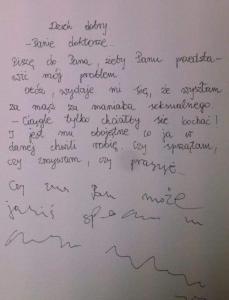 Dzień dobry
- Panie doktorze...
Piszę do Pana, żeby Panu przedsta-
wić mój problem
Otóż, wydaje mi się, że wyszłam
za mąż za maniaka seksualnego.
- Ciągle tylko chciałby się kochać!
I jest mu obojętne co ja w
danej chwili robię. Czy sprzątam,
czy zmywam, czy prasuję.
Czy zna Pan może
jakiś spo